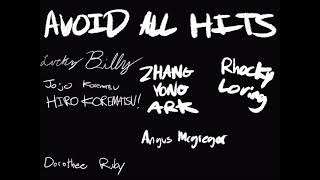 AVOID ALL HITS
Lucky Billy
Jojo Korematsu
HIRO KOREMATSU!
ZHANG
YONG
ARK
Rhocky
Loving
Angus Mcgregor
Dorothee Ruby